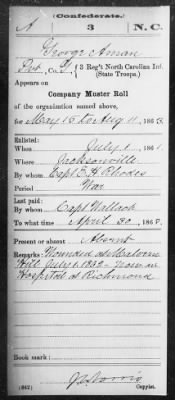 (Confederate.)
A 3 N.C.
George Aman
Pvt, Co. G, { 3 Reg't North Carolina Inf.
(State Troops.)
Appears on
Company Muster Roll
of the organization named above,
for May 16 to Aug 11, 1863
Enlisted:
When July 1, 186 1
Where Jacksonville
By whom Capt E H Rhodes
Period War
Last paid:
By whom Capt Wallach
To what time April 30, 186
Present or absent Absent
Remarks: Wounded at Malvern
Hill July 1. 1862 - now in
Hospital at Richmond
Book mark:
(642) J. C. Norris
Copyist.